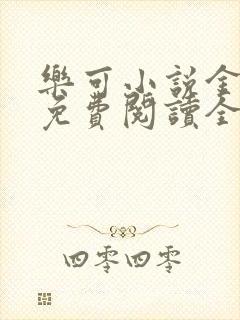 樂可小說全
免費閱讀全
四零四零